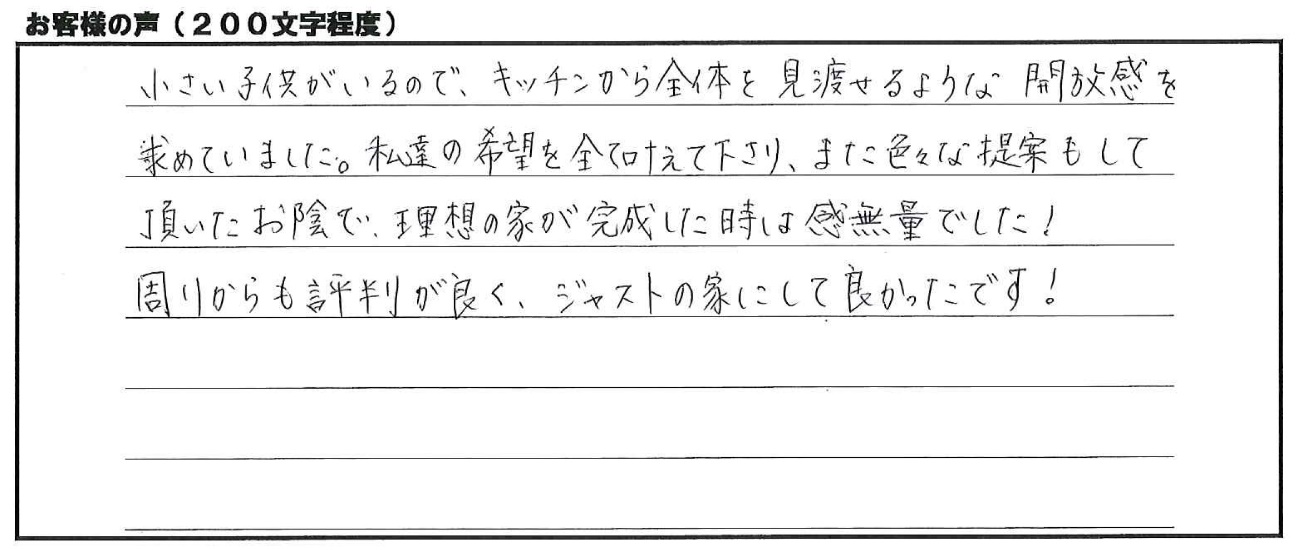 お客様の声(200文字程度)
小さい子供がいるので、キッチンから全体を見渡せるような開放感を
求めていました。私達の希望を全て叶えて下さり、また色々な提案もして
頂いたお陰で、理想の家が完成した時は感無量でした!
周りからも評判が良く、ジャストの家にして良かったです!